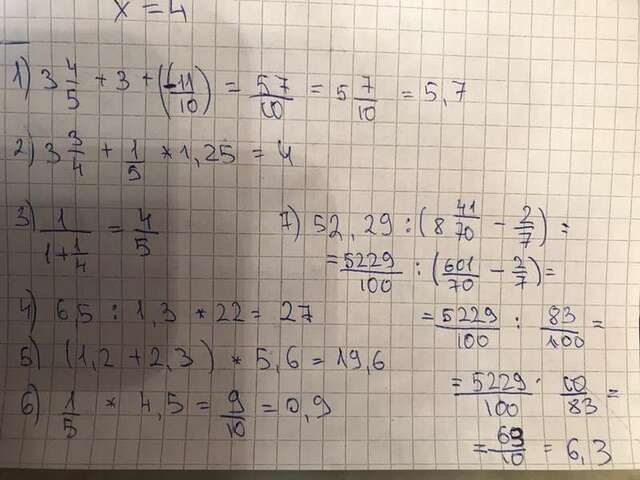 x = 4
1) 3 4/5 + 3 + (-11/10) = 57/10 = 5 7/10 = 5,7
2) 3 3/4 + 1/5 * 1,25 = 4
3) 1/(1+1/4) = 4/5
4) 6,5 : 1,3 * 22 = 27
5) (1,2 + 2,3) * 5,6 = 19,6
6) 1/5 * 4,5 = 9/10 = 0,9
7) 52,29 : (8 41/70 - 2/7) =
= 5229/100 : (601/70 - 2/7) =
= 5229/100 : 83/100 =
= 5229/100 · 10/83 =
= 63/10 = 6,3